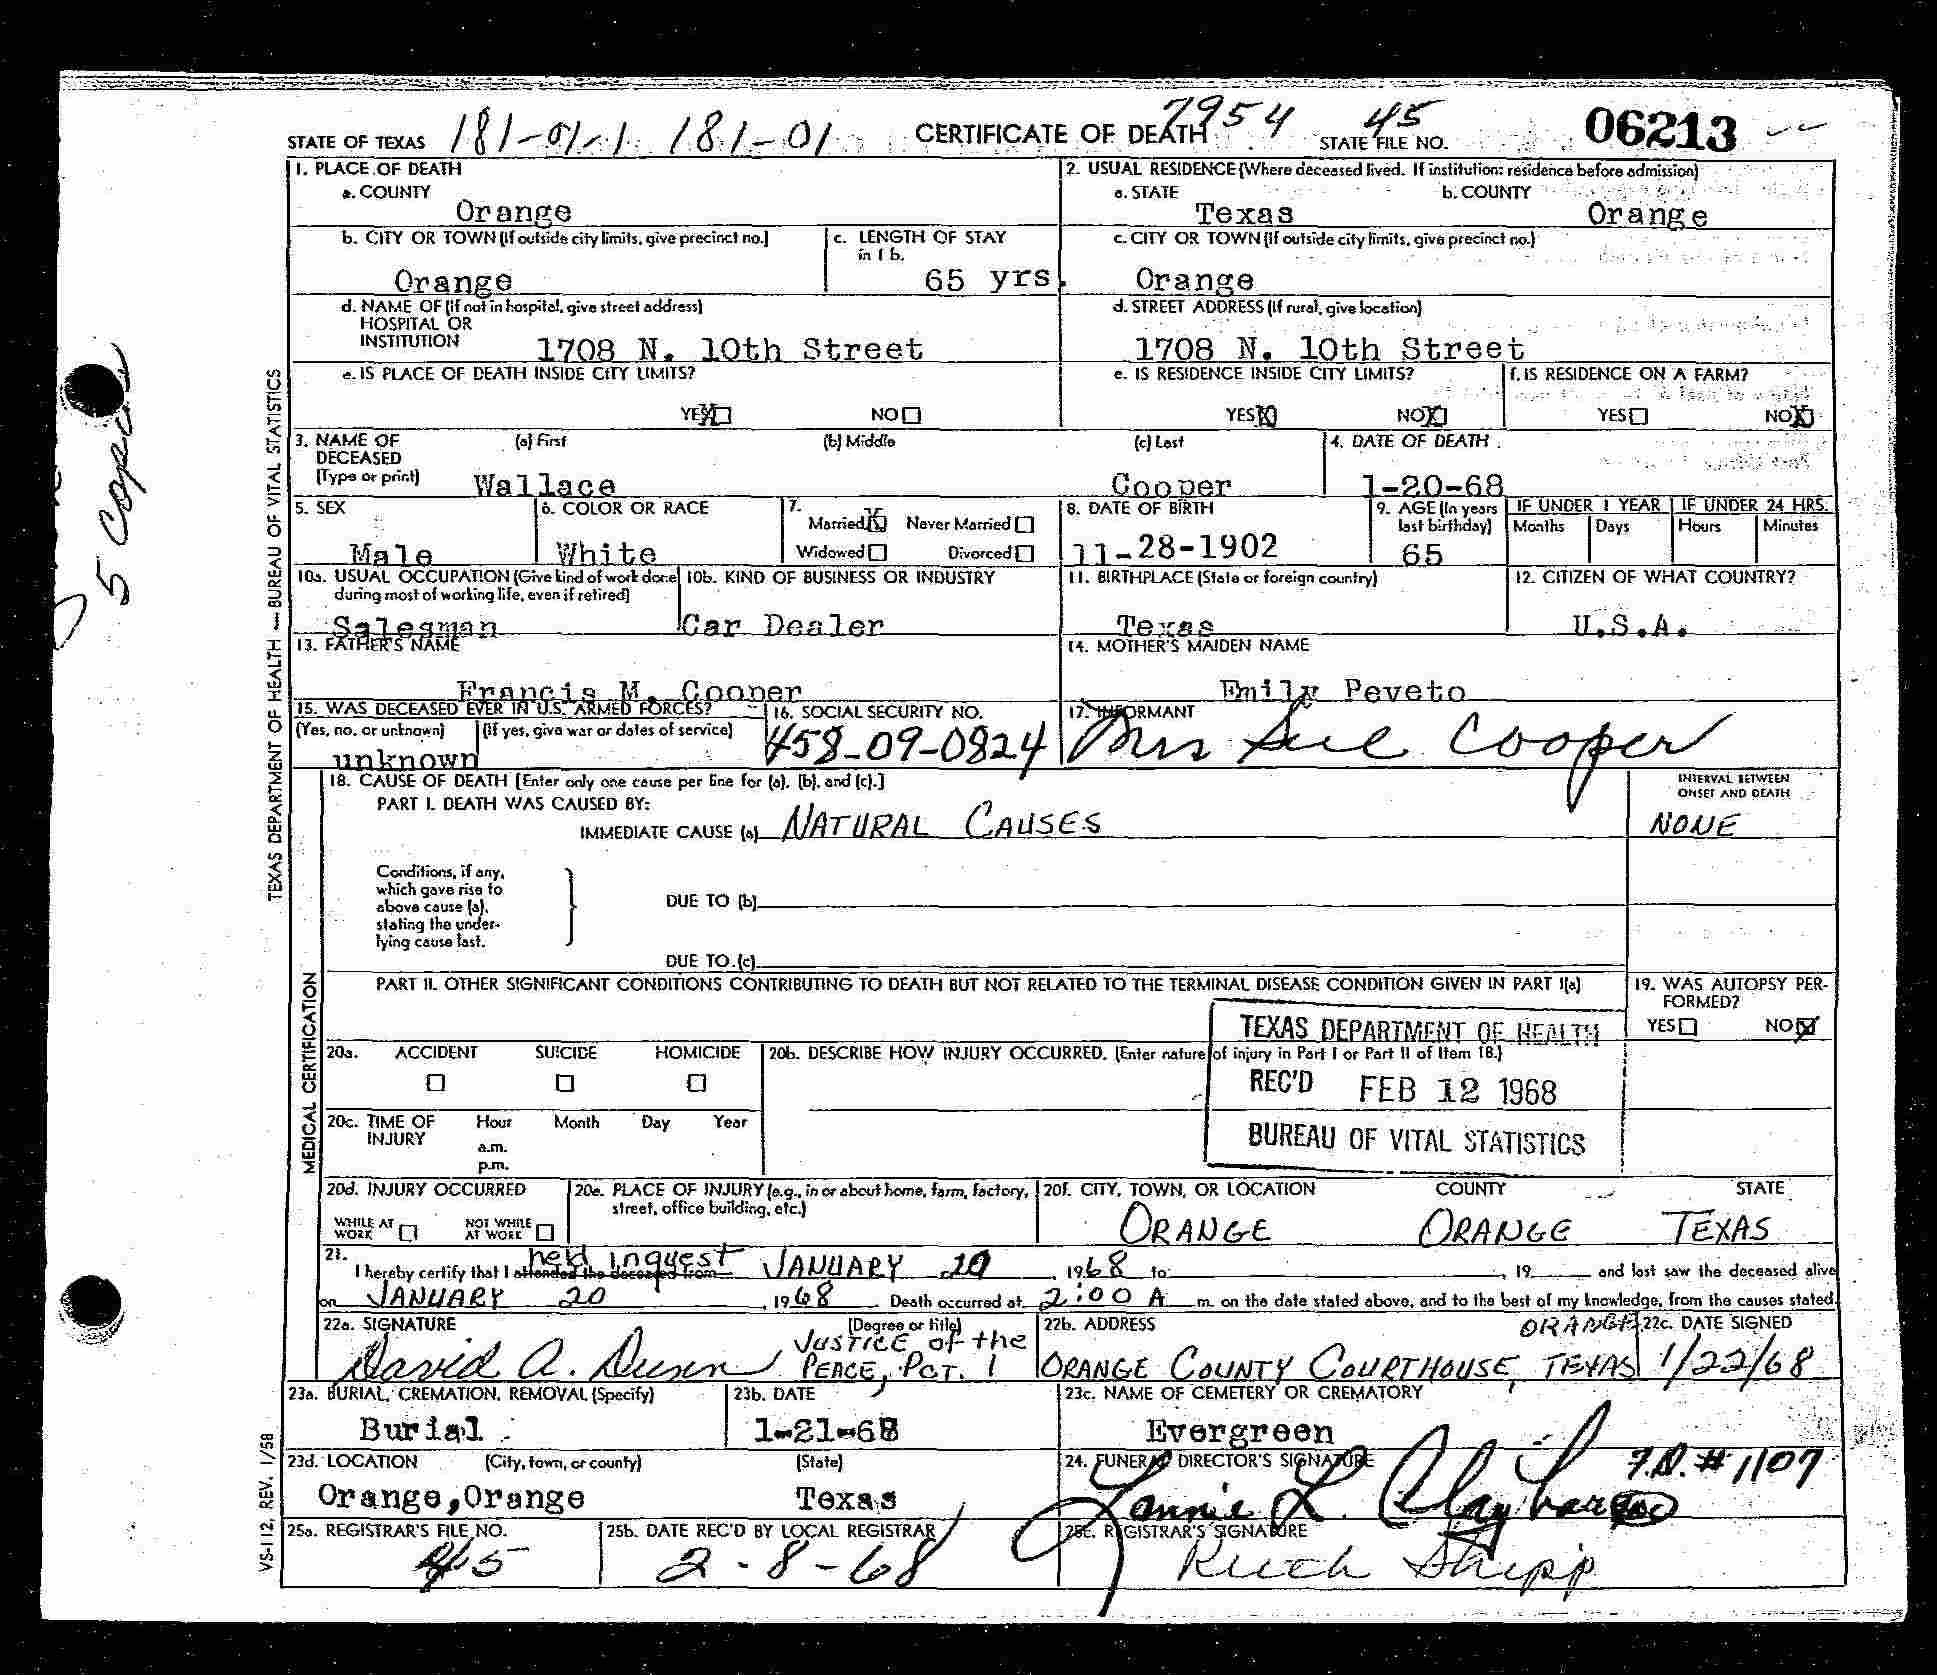 STATE OF TEXAS 181-01-1 181-01 CERTIFICATE OF DEATH 7954 45 STATE FILE NO. 06213
1. PLACE OF DEATH
a. COUNTY
Orange
2. USUAL RESIDENCE (Where deceased lived. If institution: residence before admission)
a. STATE b. COUNTY
Texas Orange
b. CITY OR TOWN (If outside city limits, give precinct no.) c. LENGTH OF STAY in 1 b.
Orange 65 yrs.
c. CITY OR TOWN (If outside city limits, give precinct no.)
Orange
d. NAME OF (If not in hospital, give street address)
HOSPITAL OR
INSTITUTION 1708 N. 10th Street
d. STREET ADDRESS (If rural, give location)
1708 N. 10th Street
e. IS PLACE OF DEATH INSIDE CITY LIMITS?
YES X NO
e. IS RESIDENCE INSIDE CITY LIMITS? f. IS RESIDENCE ON A FARM?
YES X NO X YES NO X
3. NAME OF DECEASED (Type or print) (a) First (b) Middle (c) Last 4. DATE OF DEATH
Wallace Cooper 1-20-68
5. SEX 6. COLOR OR RACE 7. Married X Never Married Widowed Divorced
Male White
8. DATE OF BIRTH 9. AGE (In years last birthday) IF UNDER 1 YEAR IF UNDER 24 HRS.
Months Days Hours Minutes
11-28-1902 65
10a. USUAL OCCUPATION (Give kind of work done during most of working life, even if retired) 10b. KIND OF BUSINESS OR INDUSTRY
Salesman Car Dealer
11. BIRTHPLACE (State or foreign country) 12. CITIZEN OF WHAT COUNTRY?
Texas U.S.A.
13. FATHER'S NAME 14. MOTHER'S MAIDEN NAME
Francis M. Cooper Emily Peveto
15. WAS DECEASED EVER IN U.S. ARMED FORCES? 16. SOCIAL SECURITY NO. 17. INFORMANT
(Yes, no, or unknown) (If yes, give war or dates of service)
unknown 458-09-0824 Mrs Sue Cooper
18. CAUSE OF DEATH [Enter only one cause per line for (a), (b), and (c).] INTERVAL BETWEEN ONSET AND DEATH
PART I. DEATH WAS CAUSED BY:
IMMEDIATE CAUSE (a) NATURAL CAUSES NONE
Conditions, if any,
which gave rise to
above cause (a),
stating the under-
lying cause last.
DUE TO (b)
DUE TO (c)
PART II. OTHER SIGNIFICANT CONDITIONS CONTRIBUTING TO DEATH BUT NOT RELATED TO THE TERMINAL DISEASE CONDITION GIVEN IN PART I(a)
19. WAS AUTOPSY PER-
FORMED?
YES NO X
TEXAS DEPARTMENT OF HEALTH
REC'D FEB 12 1968
BUREAU OF VITAL STATISTICS
20a. ACCIDENT SUICIDE HOMICIDE 20b. DESCRIBE HOW INJURY OCCURRED. (Enter nature of injury in Part I or Part II of Item 18.)
20c. TIME OF INJURY Hour Month Day Year
a.m.
p.m.
20d. INJURY OCCURRED
WHILE AT WORK NOT WHILE AT WORK
20e. PLACE OF INJURY (e.g., in or about home, farm, factory, street, office building, etc.)
20f. CITY, TOWN, OR LOCATION COUNTY STATE
ORANGE ORANGE TEXAS
21. held inquest
I hereby certify that I attended the deceased from JANUARY 20, 1968 to , 19 and last saw the deceased alive
on JANUARY 20, 1968. Death occurred at 2:00 A m. on the date stated above, and to the best of my knowledge, from the causes stated.
22a. SIGNATURE (Degree or title) 22b. ADDRESS 22c. DATE SIGNED
David A. Dunn JUSTICE of the PEACE, PCT. 1 ORANGE COUNTY COURTHOUSE, ORANGE, TEXAS 1/22/68
23a. BURIAL, CREMATION, REMOVAL (Specify) 23b. DATE 23c. NAME OF CEMETERY OR CREMATORY
Burial 1-21-68 Evergreen
23d. LOCATION (City, town, or county) (State) 24. FUNERAL DIRECTOR'S SIGNATURE
Orange, Orange Texas Lonnie L. Claybar F.D. # 1107
25a. REGISTRAR'S FILE NO. 25b. DATE REC'D BY LOCAL REGISTRAR 25c. REGISTRAR'S SIGNATURE
45 2-8-68 Ruth Shipp
TEXAS DEPARTMENT OF HEALTH — BUREAU OF VITAL STATISTICS
MEDICAL CERTIFICATION
VS-112, REV. 1/58
5 Copies